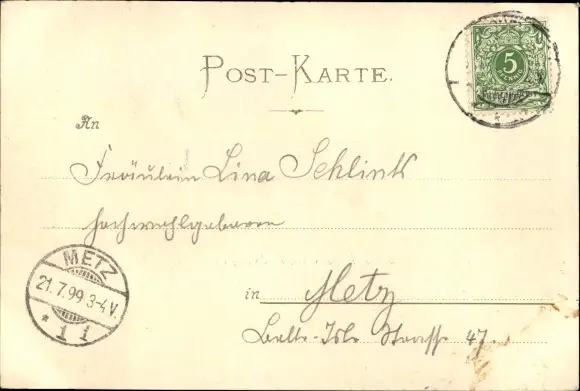 POST-KARTE.
5
An
Fräulein Lina Schlink
hochwohlgeboren
in Metz
Belle-Isle Strasse 47.
METZ
21.7.99 3-4V.
* 1 i